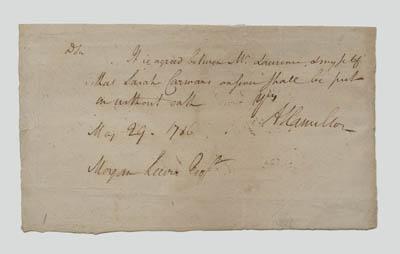 D Sir
It is agreed between Mr. Laurence & myself
that Sarah answer shall be put
in without oath
A Hamilton
May 29. 1786
Morgan Lewis Esqr.